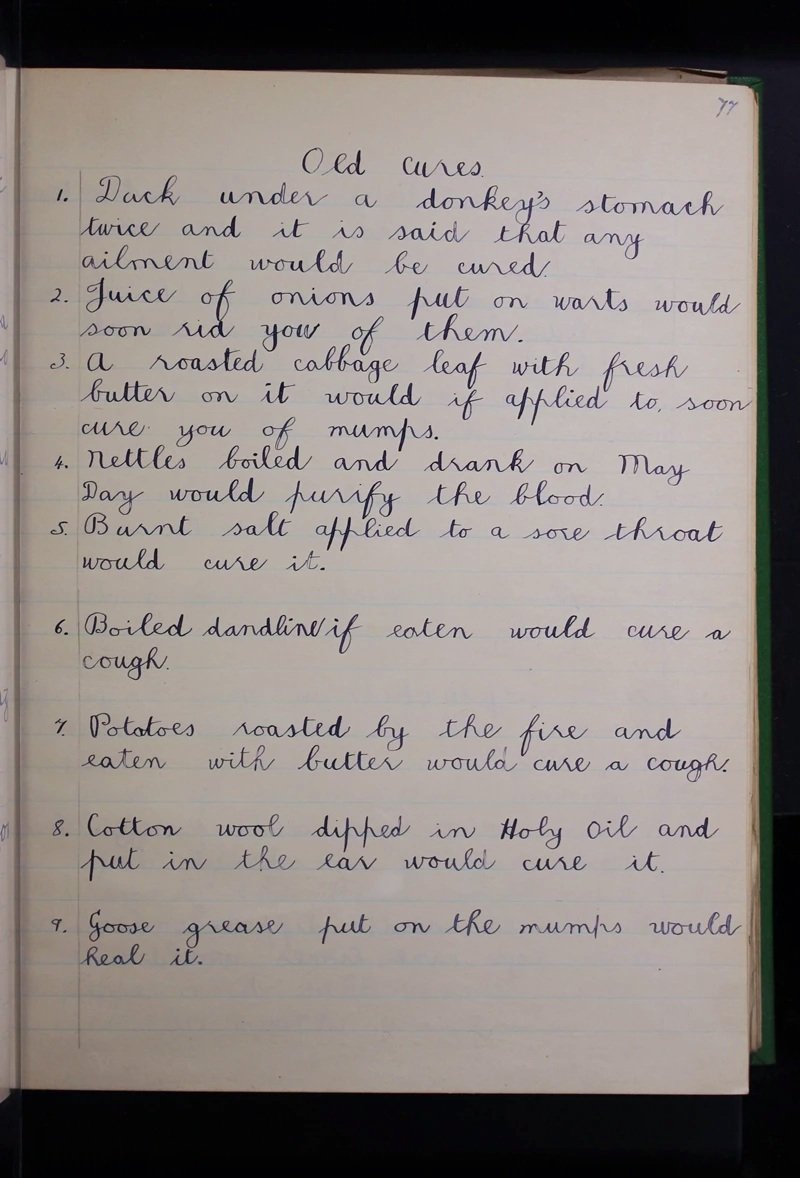 77
Old cures.
1. Duck under a donkey's stomach
twice and it is said that any
ailment would be cured.
2. Juice of onions put on warts would
soon rid you of them.
3. A roasted cabbage leaf with fresh
butter on it would if applied to, soon
cure you of mumps.
4. Nettles boiled and drank on May
Day would purify the blood.
5. Burnt salt applied to a sore throat
would cure it.
6. Boiled dandline if eaten would cure a
cough.
7. Potatoes roasted by the fire and
eaten with butter would cure a cough.
8. Cotton wool dipped in Holy Oil and
put in the ear would cure it.
9. Goose grease put on the mumps would
heal it.